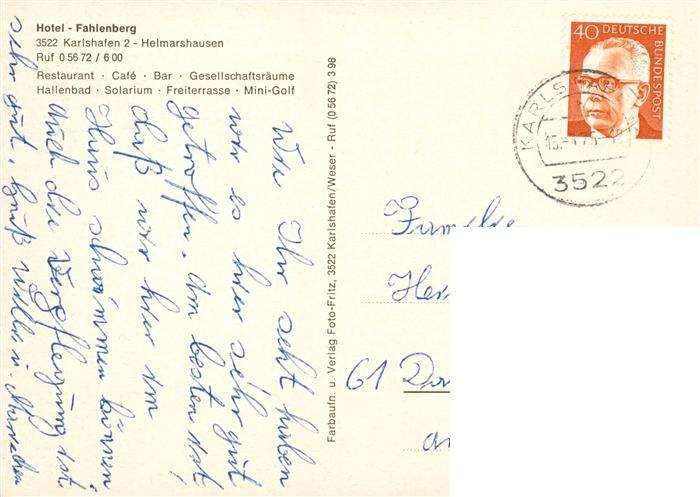 Hotel - Fahlenberg
3522 Karlshafen 2 - Helmarshausen
Ruf 0 56 72 / 6 00
Restaurant · Café · Bar · Gesellschaftsräume
Hallenbad · Solarium · Freiterrasse · Mini-Golf
Wie Ihr seht haben
wir es hier sehr gut
getroffen. Am besten ist
daß wir hier im
Haus schwimmen können
Auch die Verpflegung ist
sehr gut, Gruß Willi u.
Farbaufn. u. Verlag Foto-Fritz, 3522 Karlshafen/Weser - Ruf (0 56 72) 3 98
40 DEUTSCHE BUNDESPOST
KARLSHA
15.
3522
Familie
Her
61 Da